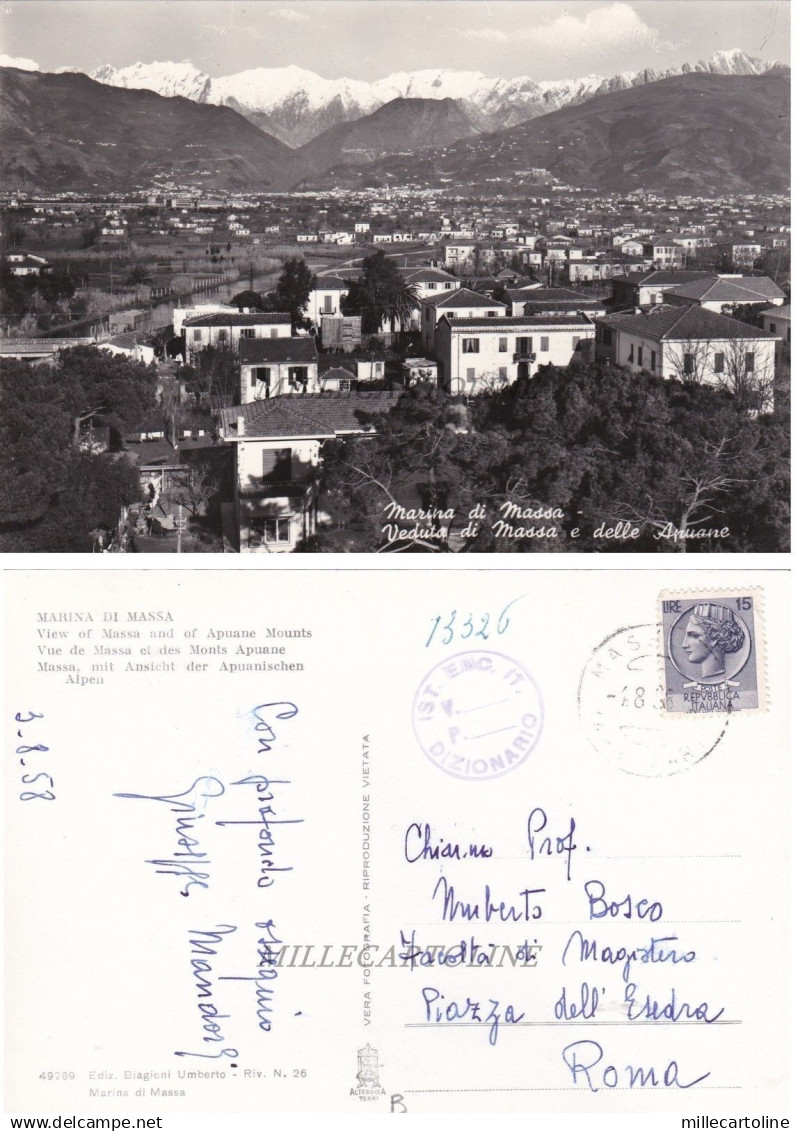 Marina di Massa -
Veduta di Massa e delle Apuane
MARINA DI MASSA
View of Massa and of Apuane Mounts
Vue de Massa et des Monts Apuane
Massa, mit Ansicht der Apuanischen
Alpen
13326
IST. ENC. IT.
V.
P.
DIZIONARIO
MASSA
LIRE 15
POSTE
REPVBBLICA
ITALIANA
3.8.58
Con profondo ossequio
Giuseppe
VERA FOTOGRAFIA - RIPRODUZIONE VIETATA
Chiar.mo Prof.
Umberto Bosco
Facoltà di Magistero
Piazza dell'Esedra
Roma
MILLECARTOLINE
49289 Ediz. Biagioni Umberto - Riv. N. 26
Marina di Massa
ALTEROCCA
TERNI
B
millecartoline